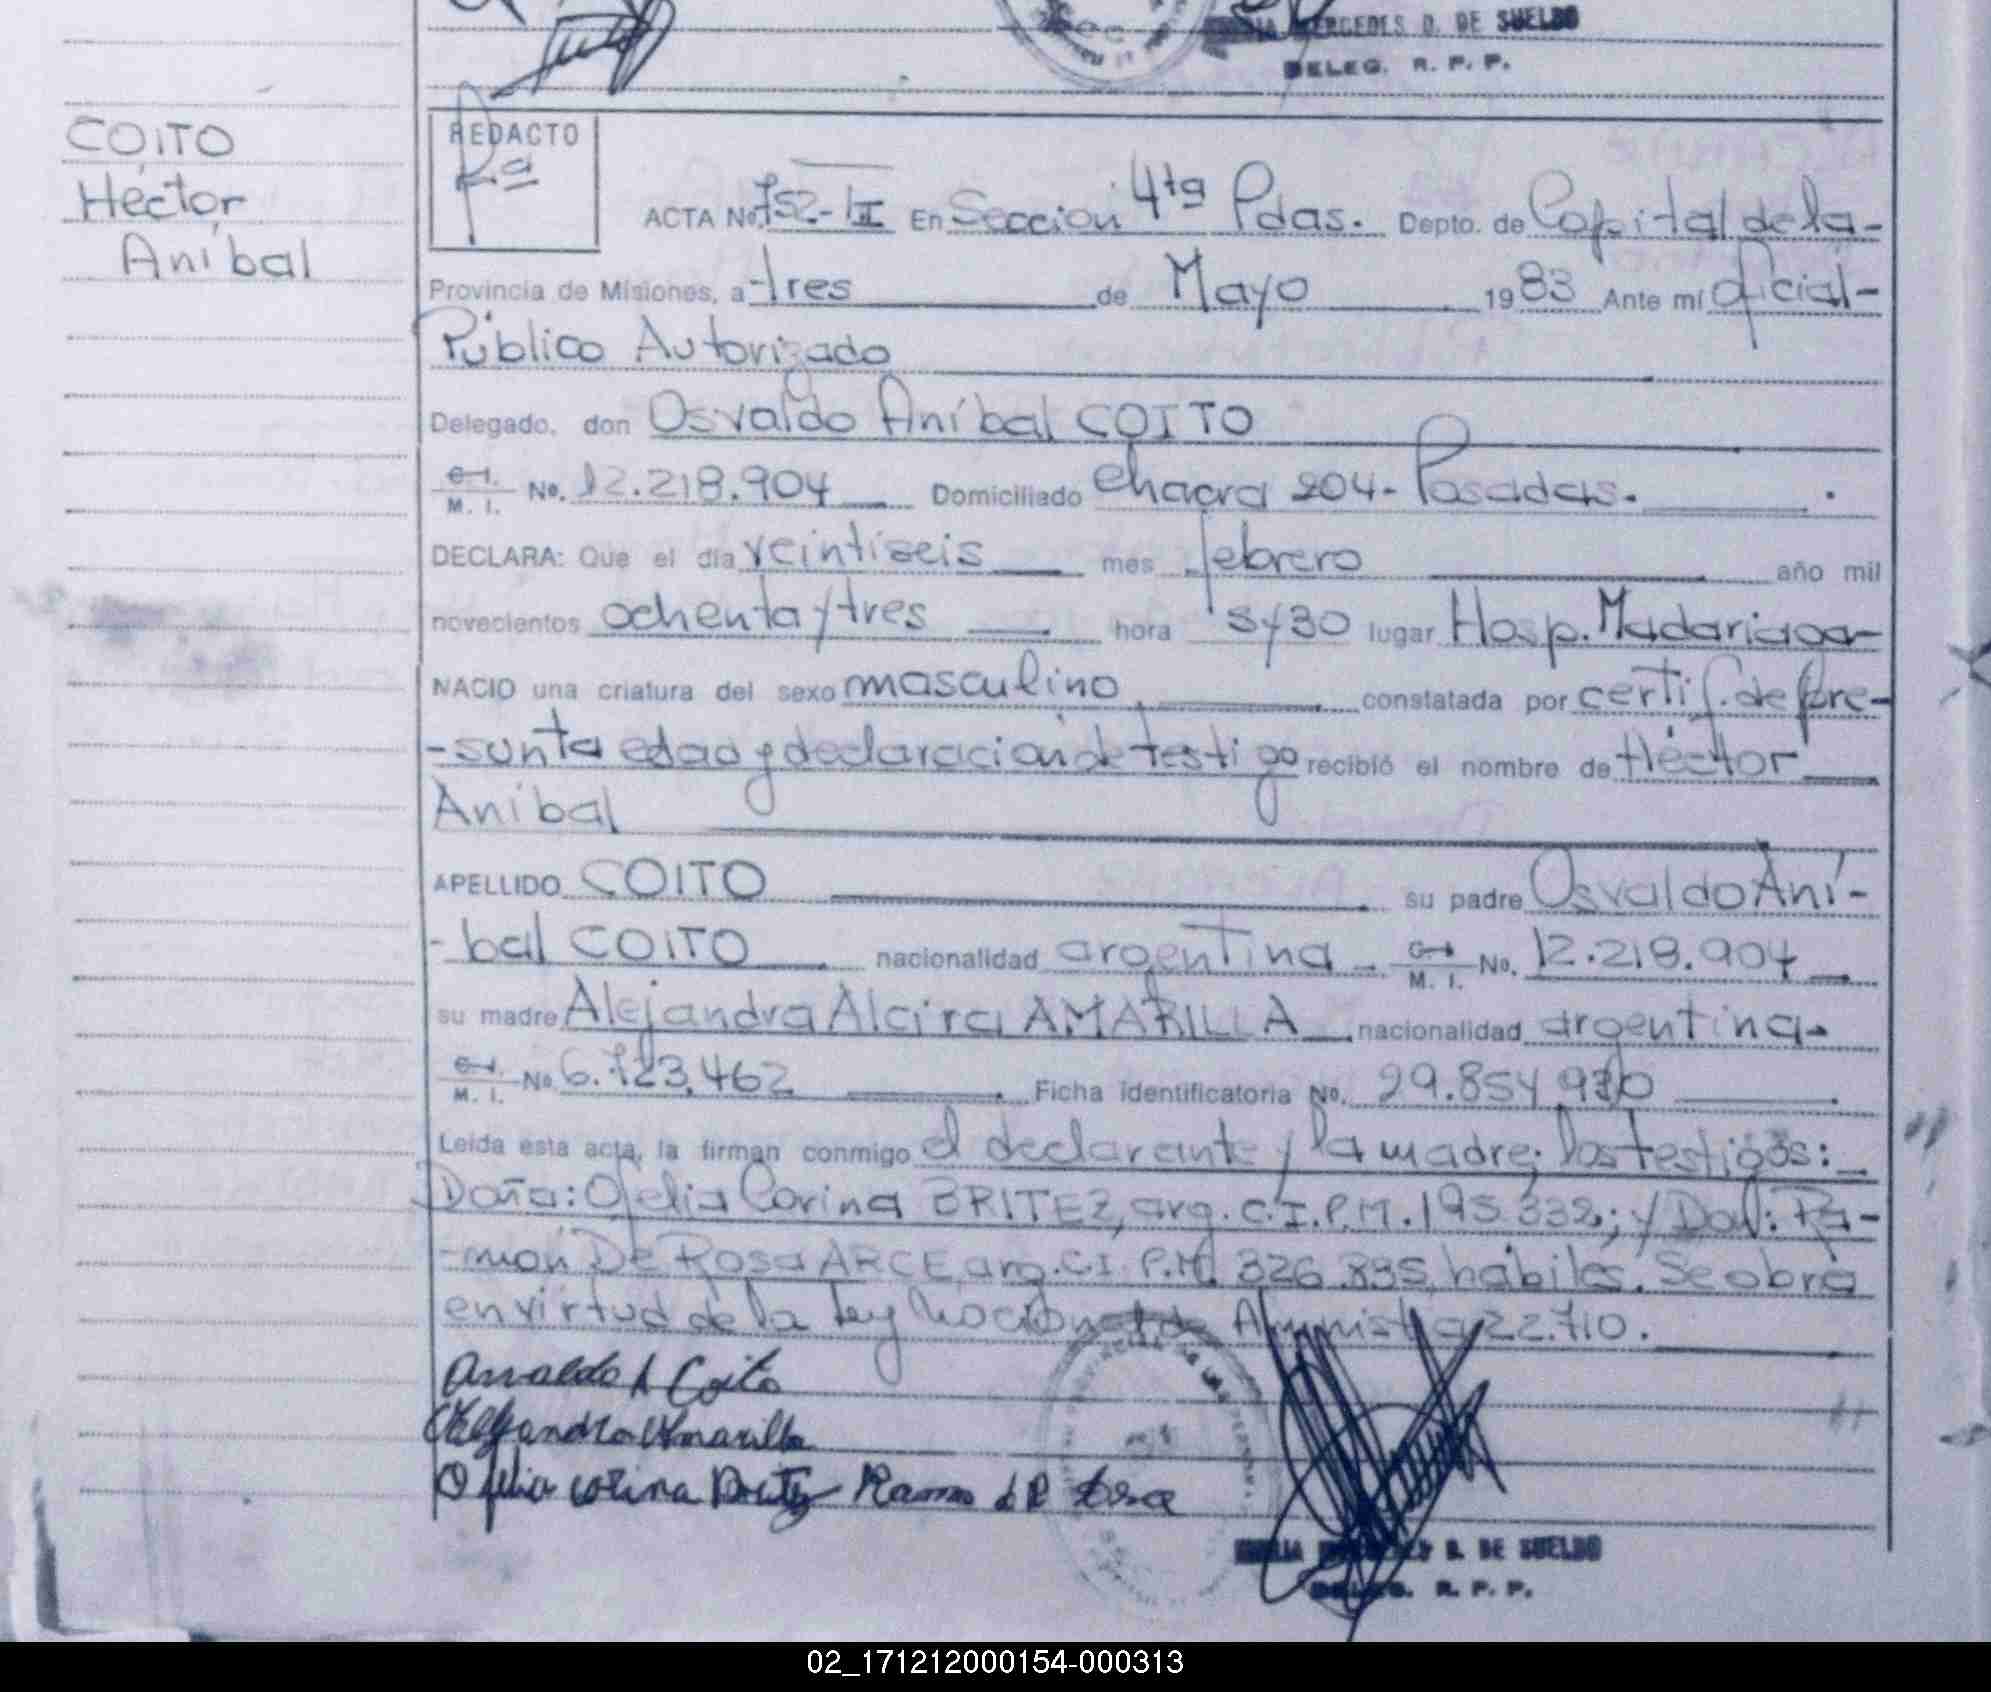 MERCEDES D. DE SUELDO
DELEG. R. P. P.
COITO
Héctor
Aníbal
REDACTO
ACTA No. 752-III En Seccion 4ta Pdas. Depto. de Capital de la-
Provincia de Misiones, a tres de Mayo 1983 Ante mí oficial-
Público Autorizado
Delegado, don Osvaldo Aníbal COITO
C.I. M. I. No. 12.218.904 Domiciliado chacra 204- Posadas.
DECLARA: Que el día veintiseis mes febrero año mil
novecientos ochenta y tres hora 3y30 lugar Hosp. Madariaga-
NACIO una criatura del sexo masculino constatada por certif. de pre-
-sunta edad y declaracion de testigo recibió el nombre de Héctor
Aníbal
APELLIDO COITO su padre Osvaldo Aní-
-bal COITO nacionalidad argentina C.I. M. I. No. 12.218.904
su madre Alejandra Alcira AMARILLA nacionalidad argentina-
C.I. M. I. No 6.723.462 Ficha identificatoria No. 29.854.930
Leída esta acta, la firman conmigo el declarante y la madre; los testigos:
Doña: Ofelia Corina BRITEZ, arg. C.I.P.M. 195.332; y Don: Ra-
-món De Rosa ARCE, arg. C.I. P.M. 326.835, hábiles. Se obra
en virtud de la Ley Nacional de Amnistia 22.710.
Osvaldo A Coito
Alejandra Amarilla
Ofelia Corina Britez Ramon d R Arce
D. DE SUELDO
DELEG. R. P. P.
02_171212000154-000313